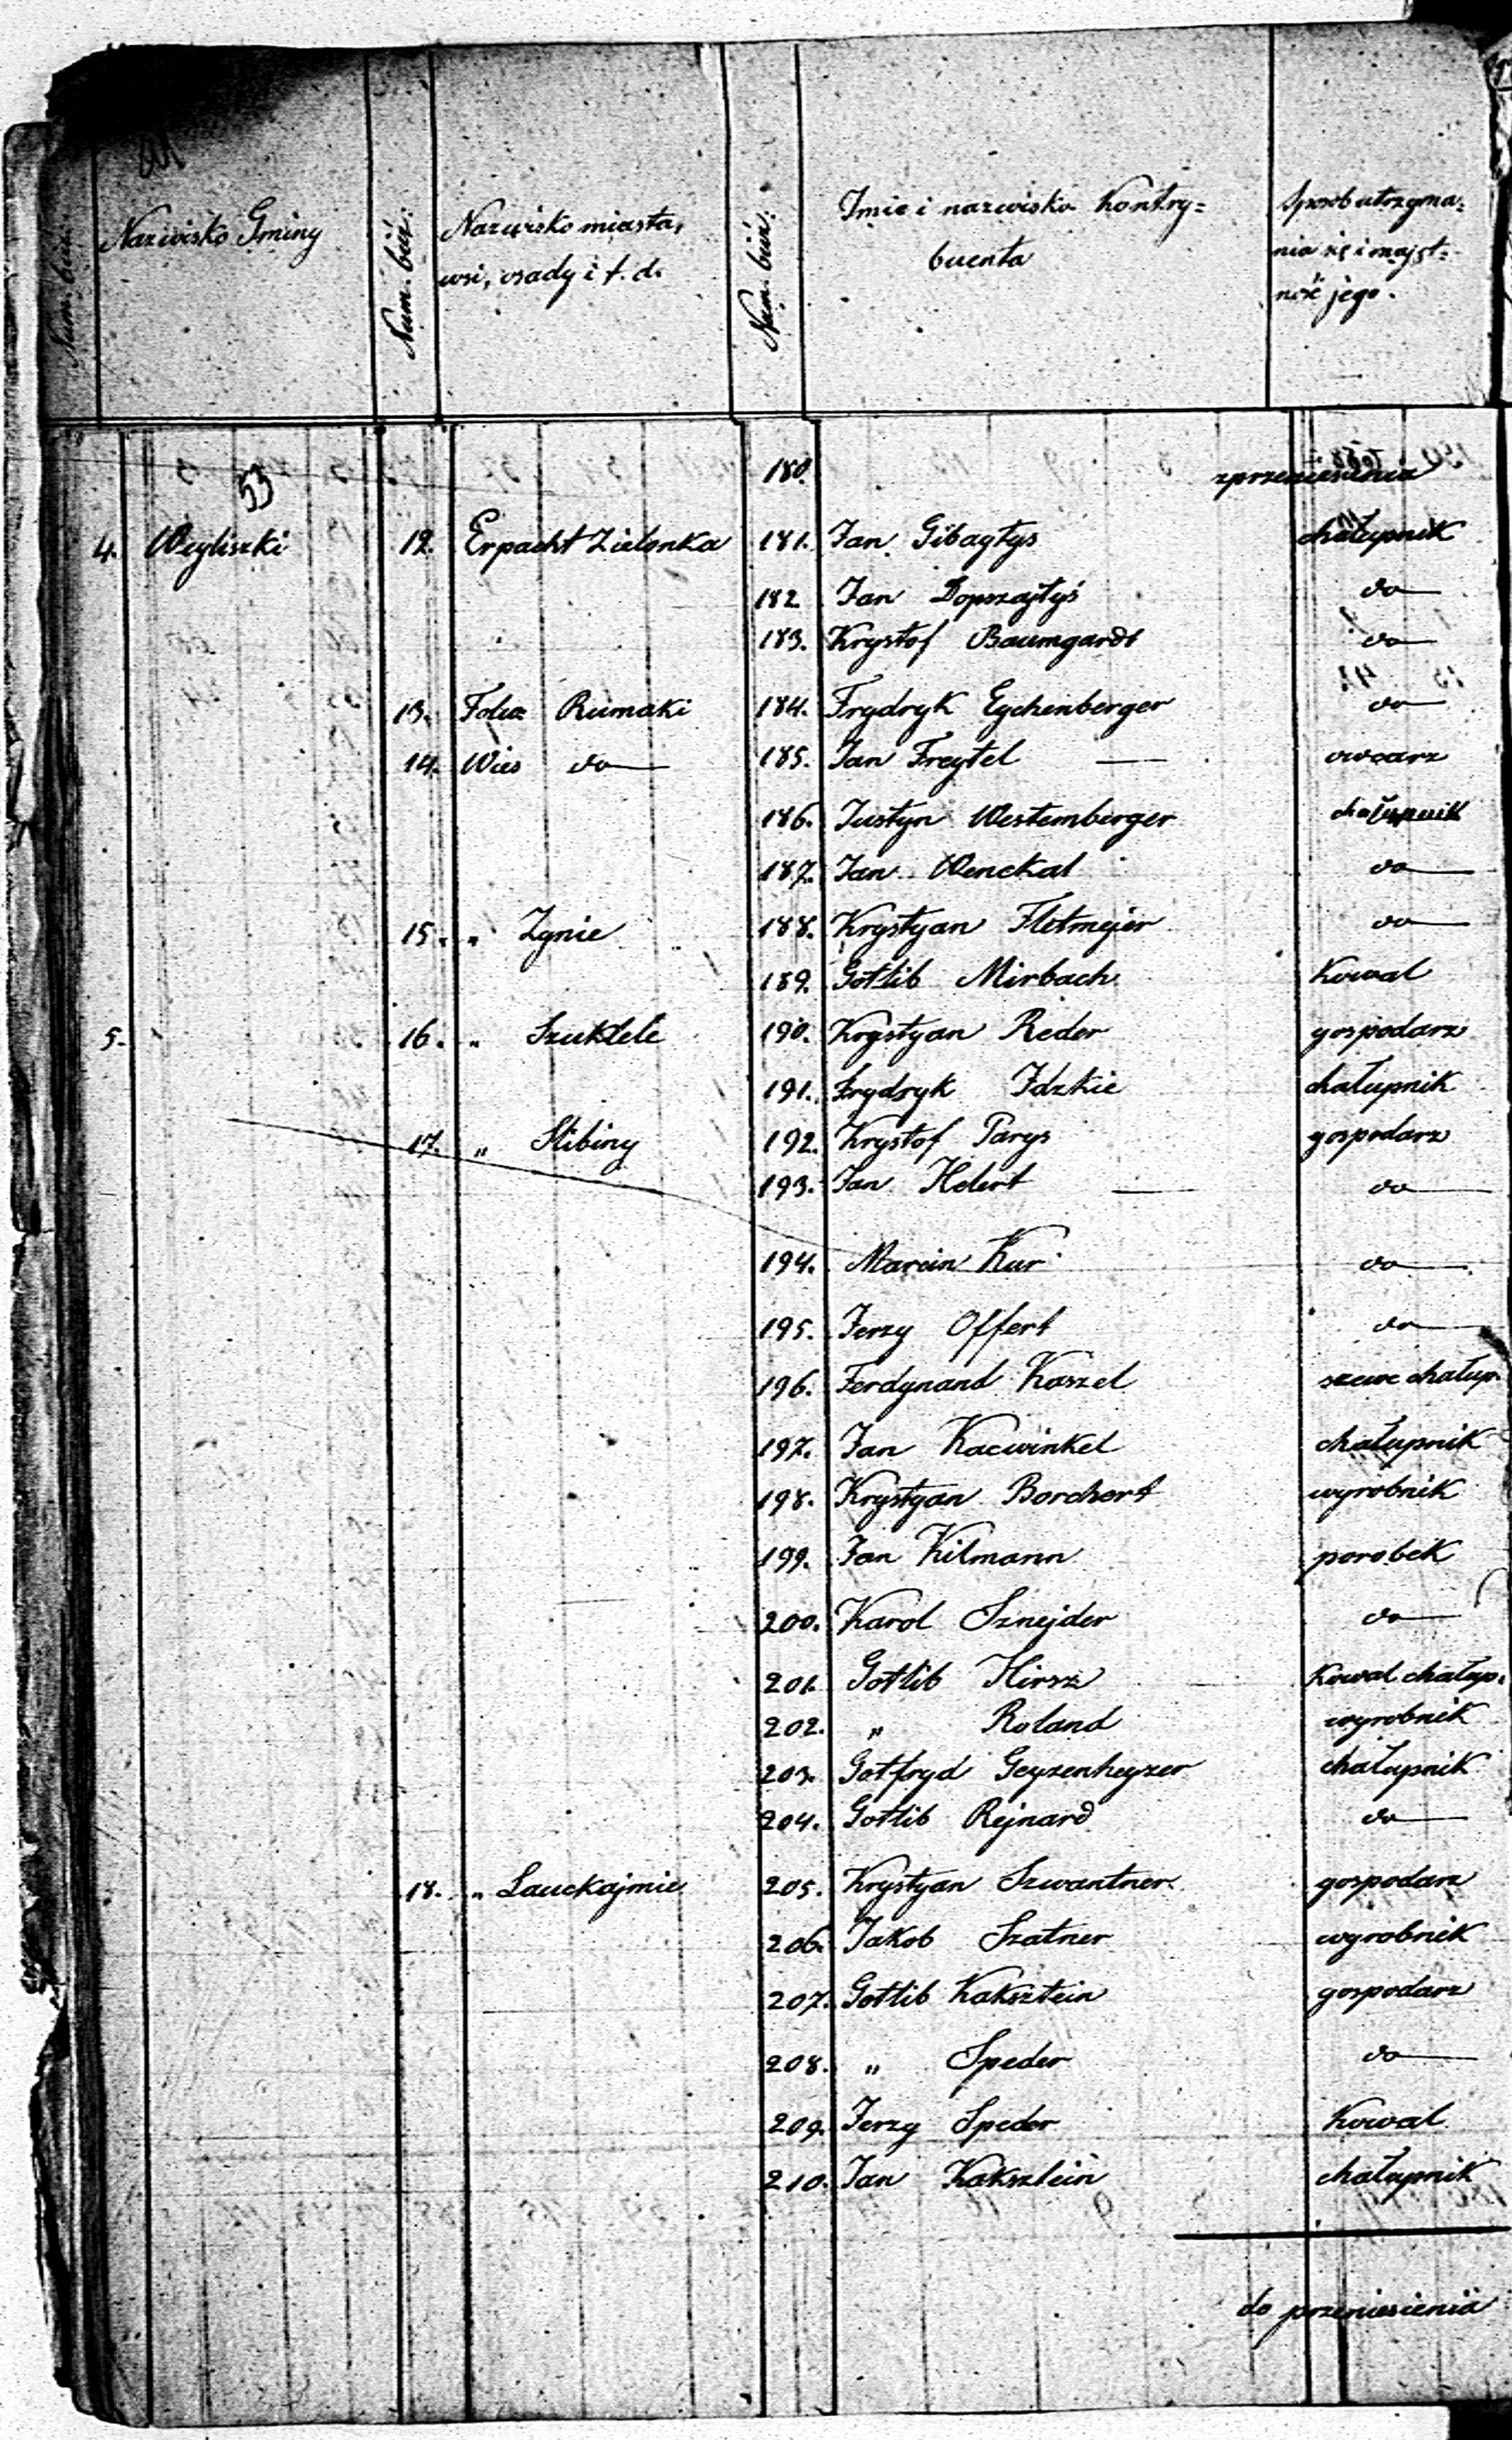 Num. bież. Nazwisko Gminy Num. bież. Nazwisko miasta, wsi, osady i t. d. Num. bież. Imie i nazwisko Kontry=buenta Sposob utrzyma=nia się i majęt=ność jego.
53
180. z przeniesienia
4. Weyliszki 12. Erpacht Zielonka 181. Jan Gibaytys chałupnik
182. Jan Dopszajtys do
183. Krystof Baumgardt do
13. Folw. Rumaki 184. Frydryk Eychenberger do
14. Wies do 185. Jan Freytel — owczarz
186. Justyn Westemberger chałupnik
187. Jan Wenckal do
15. „ Zynie 188. Krystyan Fletmejer do
189. Gotlib Mirbach Kowal
5. 16. „ Szuklele 190. Krystyan Reder gospodarz
191. Frydryk Idzkie chałupnik
17. „ Stibiny 192. Krystof Parys gospodarz
193. Jan Helert — do
194. Marcin Kur do
195. Jerzy Offert do
196. Ferdynand Kaszel szewc chałup.
197. Jan Kacwinkel chałupnik
198. Krystyan Borchert wyrobnik
199. Jan Kilmann parobek
200. Karol Sznejder do
201. Gotlib Hirsz Kowal chałup.
202. „ Roland wyrobnik
203. Gotfryd Geyzenheyzer chałupnik
204. Gotlib Rejnard do
18. „ Lauckajmie 205. Krystyan Szwantner gospodarz
206. Jakob Szatner wyrobnik
207. Gotlib Koksztein gospodarz
208. „ Speder do
209. Jerzy Speder Kowal
210. Jan Koksztein chałupnik
do przeniesienia